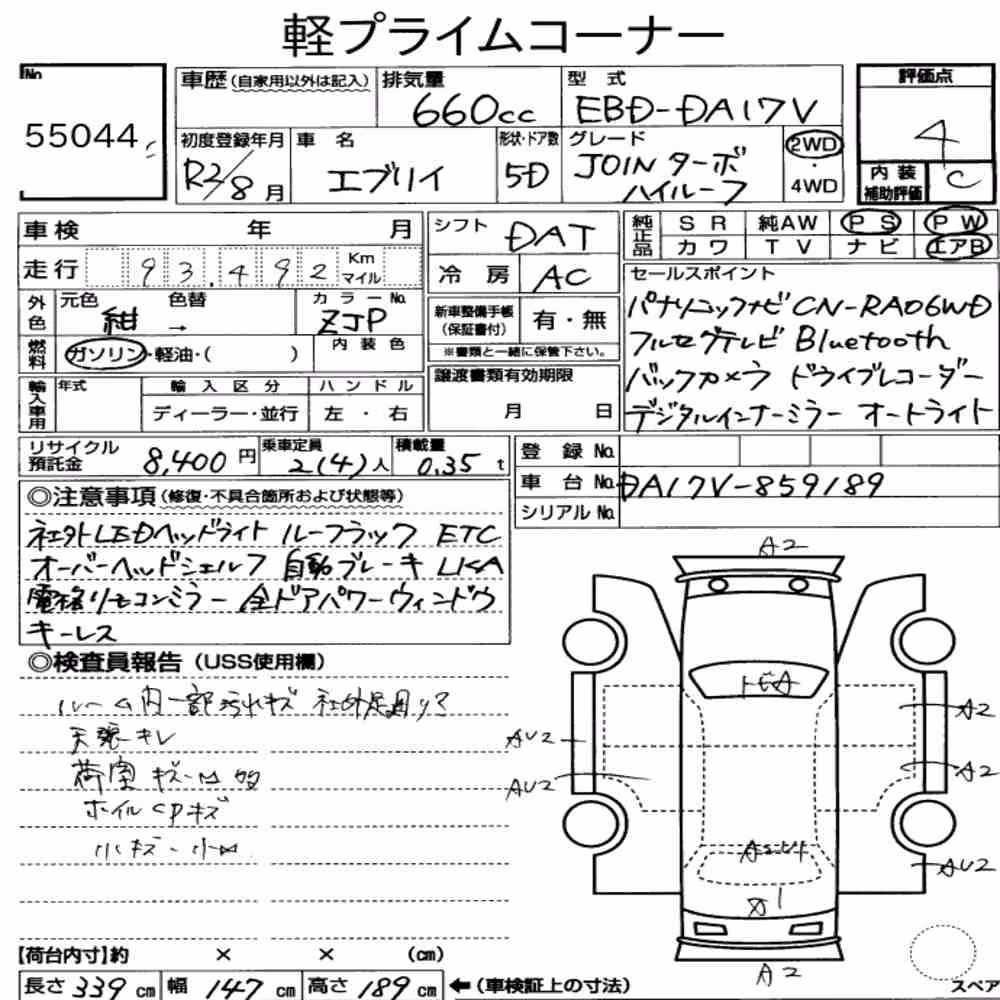 軽プライムコーナー
No.
55044
車歴(自家用以外は記入)
排気量
660cc
型式
EBD-DA17V
評価点
4
初度登録年月
R2/8月
車名
エブリイ
形状・ドア数
5D
グレード
JOIN ターボ
ハイルーフ
2WD
・
4WD
内装
補助評価
C
車検 年 月
走行 93,492 Km マイル
シフト
DAT
冷房 AC
純正品
SR 純AW PS PW
カワ TV ナビ エアB
外色
元色 色替
紺 →
カラーNo.
ZJP
燃料
ガソリン・軽油・( )
内装色
新車整備手帳
(保証書付)
有・無
※書類と一緒に保管下さい。
セールスポイント
パナソニックナビ CN-RA06WD
フルセグテレビ Bluetooth
バックカメラ ドライブレコーダー
デジタルインナーミラー オートライト
輸入車用
年式
輸入区分
ディーラー・並行
ハンドル
左・右
譲渡書類有効期限
月 日
リサイクル
預託金
8,400円
乗車定員
2(4)人
積載量
0.35t
登録No.
車台No. DA17V-859189
シリアルNo.
◎注意事項(修復・不具合箇所および状態等)
社外LEDヘッドライト ルーフラック ETC
オーバーヘッドシェルフ 自動ブレーキ LKA
電格リモコンミラー 全ドアパワーウィンドウ
キーレス
◎検査員報告(USS使用欄)
ルーム内一部汚れキズ 社外足廻り?
天張キレ
荷室 キズ
ホイルCPキズ
小キズ・小凹
A2
トビA
AU2
AU2
A2
A2
AU2
A2
【荷台内寸】約 × × (cm)
長さ339cm 幅147cm 高さ189cm ←(車検証上の寸法)
スペア